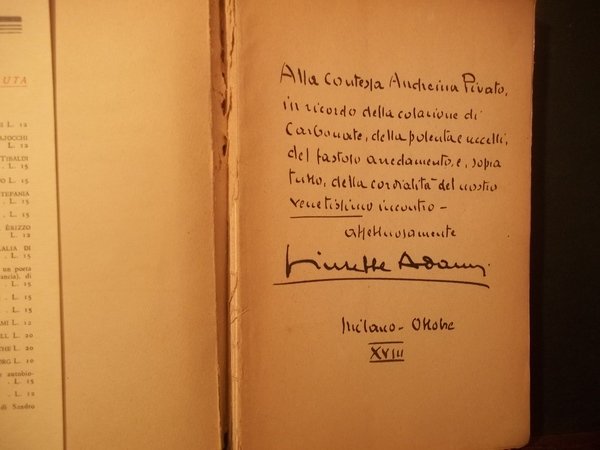 UTA
I L. 12
AJOCCHI
. L. 12
TIBALDI
. L. 15
O L. 15
TEPANIA
. L. 15
. L. 15
ERIZZO
L. 12
ALIA DI
. L. 15
un poeta
ancia). di
. L. 15
. L. 15
. L. 15
AMI L. 12
LI. L. 20
CHE L. 20
ORG L. 10
e autobio-
. L. 15
. L. 12
di Sandro
Alla Contessa Andreina Pivato,
in ricordo della colazione di
Carbonate, della polenta e uccelli,
del fastoso arredamento, e, sopra
tutto, della cordialità del nostro
venetissimo incontro -
affettuosamente
Giuseppe Adami
Milano - Ottobre
XVIII